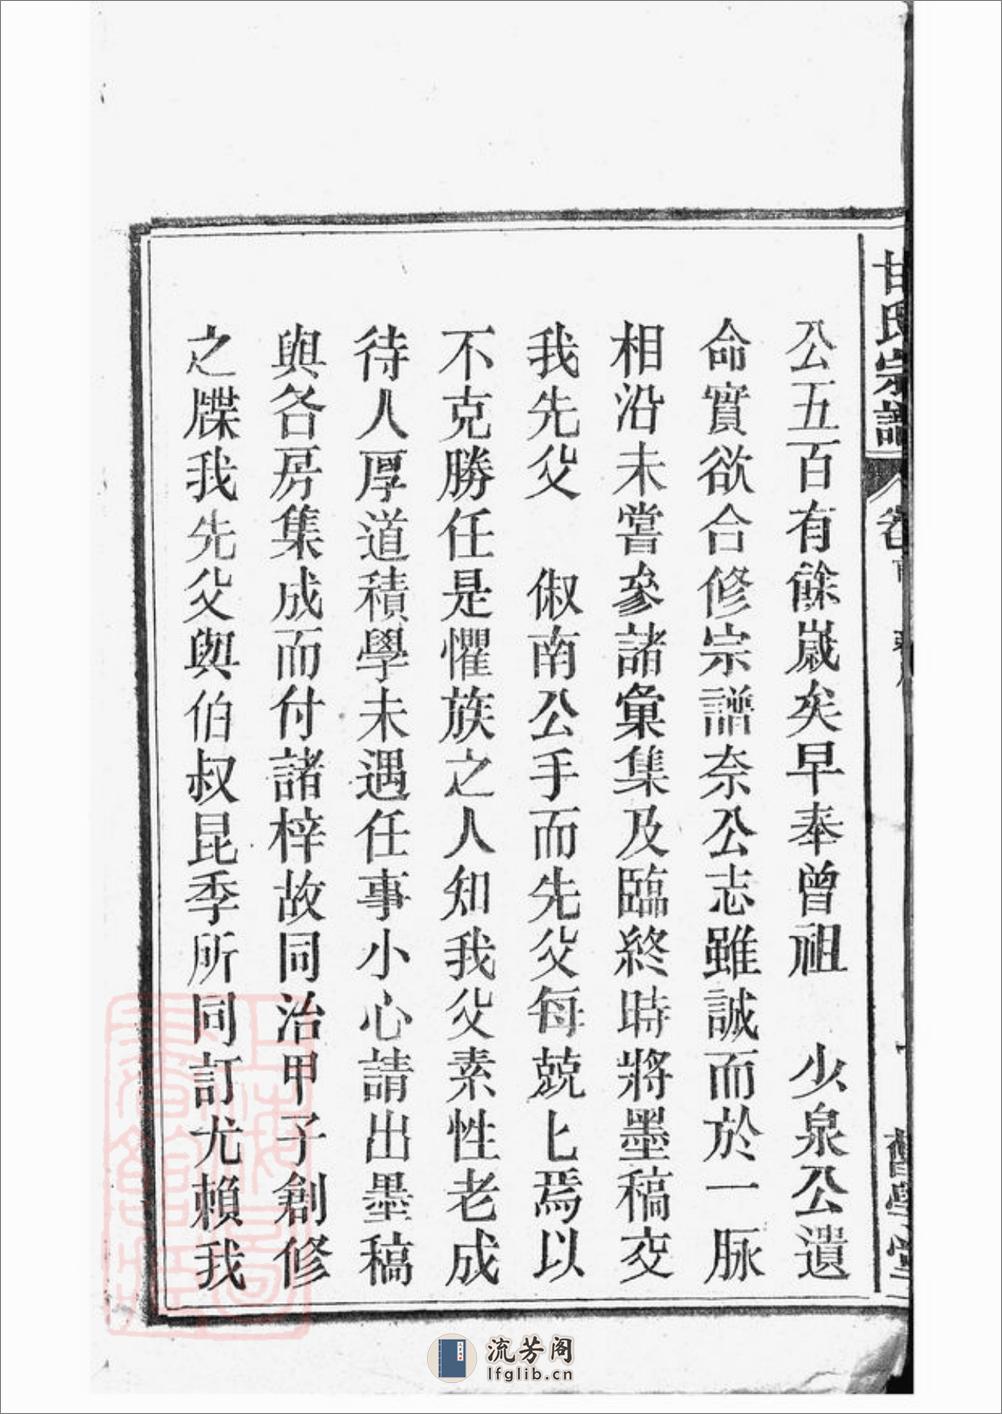 甘氏宗譜
公五百有餘歲矣早奉曾祖 少泉公遺
命實欲合修宗譜奈公志雖誠而於一脈
相沿未嘗參諸彙集及臨終時將墨稿交
我先父 俶南公手而先父每兢匕焉以
不克勝任是懼族之人知我父素性老成
待人厚道積學未遇任事小心請出墨稿
與各房集成而付諸梓故同治甲子創修
之牒我先父與伯叔昆季所同訂尤賴我
流芳阁
lfglib.cn